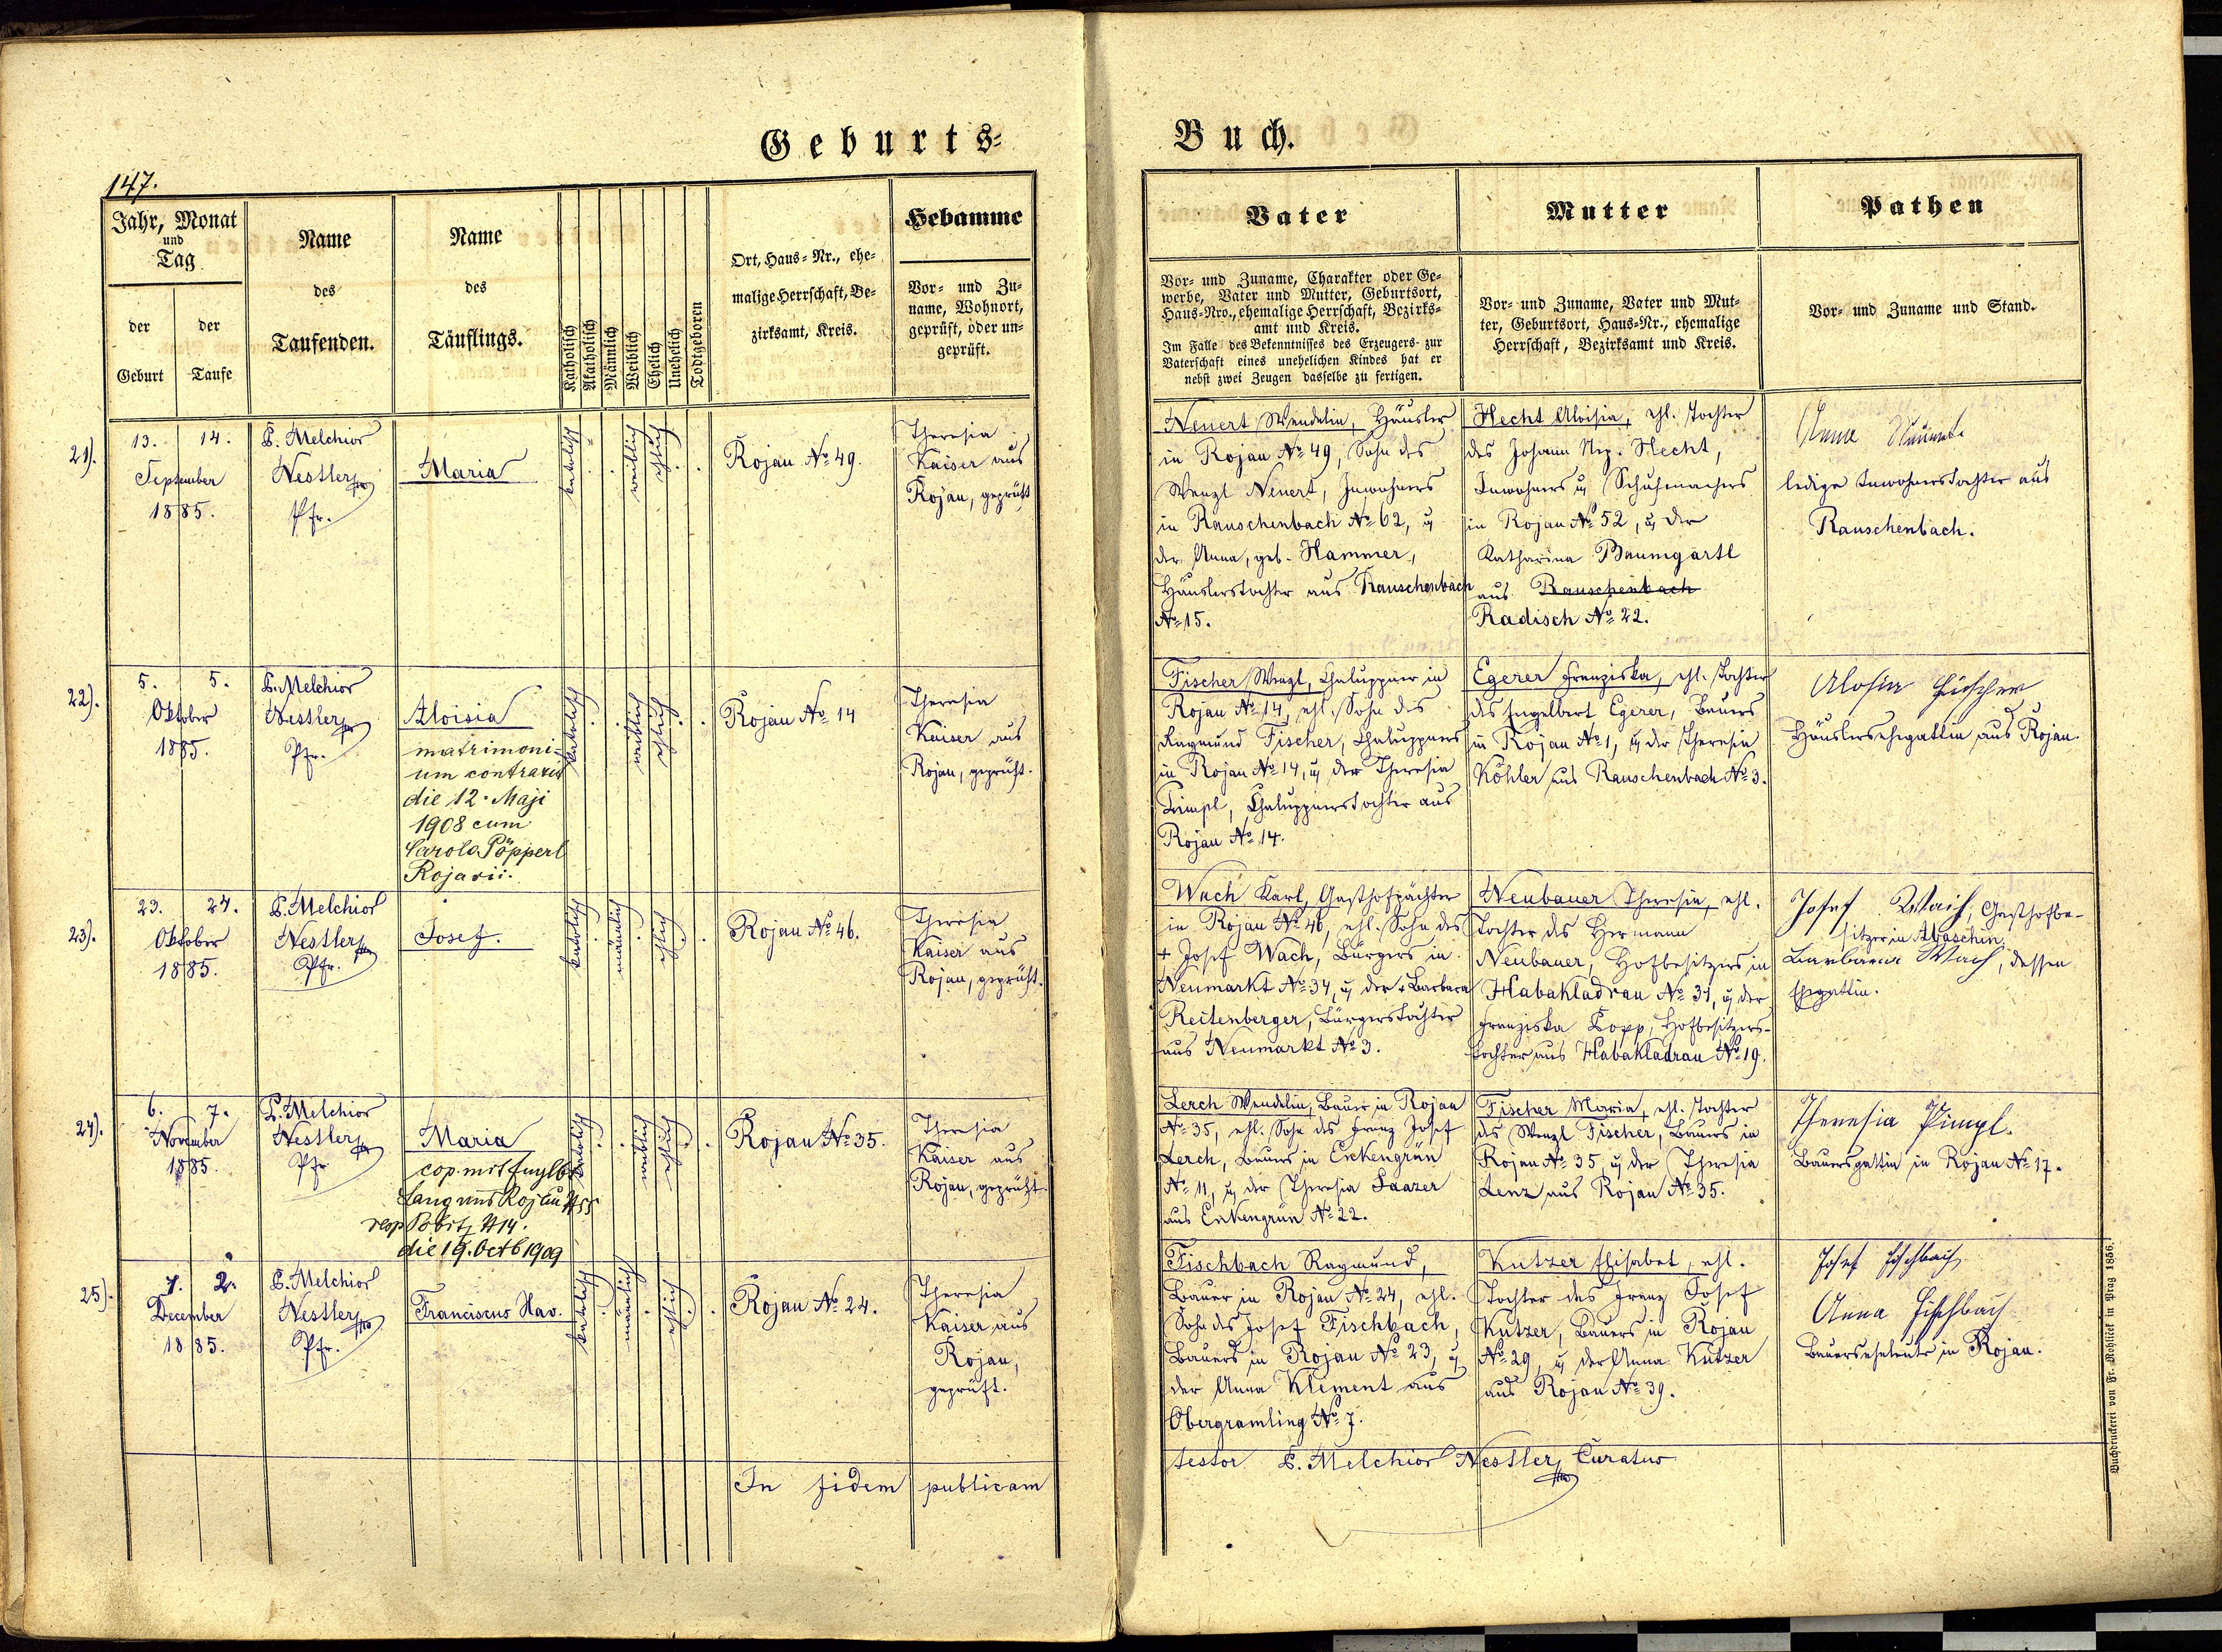 Geburts-
Buch.
147.
Jahr, Monat
und
Tag
der
Geburt
der
Taufe
Name
des
Taufenden.
Name
des
Täuflings.
Katholisch
Akatholisch
Männlich
Weiblich
Ehelich
Unehelich
Todtgeboren
Ort, Haus-Nr., ehe-
malige Herrschaft, Be-
zirksamt, Kreis.
Hebamme
Vor- und Zu-
name, Wohnort,
geprüft, oder un-
geprüft.
Vater
Vor- und Zuname, Charakter oder Ge-
werbe, Vater und Mutter, Geburtsort,
Haus-Nro., ehemalige Herrschaft, Bezirks-
amt und Kreis.
Im Falle des Bekenntnisses des Erzeugers zur
Vaterschaft eines unehelichen Kindes hat er
nebst zwei Zeugen dasselbe zu fertigen.
Mutter
Vor- und Zuname, Vater und Mut-
ter, Geburtsort, Haus-Nr., ehemalige
Herrschaft, Bezirksamt und Kreis.
Pathen
Vor- und Zuname und Stand.
21).
13. 14.
September
1885.
P. Melchior
Nestler
Pfr.
Maria
katholisch
weiblich
ehelich
Rojau No 49.
Theresia
Kaiser aus
Rojau, geprüft
Neuert Wendelin, Häusler
in Rojau No 49, Sohn des
Wenzl Neuert, Inwohners
in Rauschenbach No 62, u
der Anna, geb. Hammer,
Häuslerstochter aus Rauschenbach
No 15.
Hecht Aloisia, ehl. Tochter
des Johann Nep. Hecht,
Inwohners u Schuhmachers
in Rojau No 52, u der
Katharina Baumgartl
aus Rauschenbach
Radisch No 22.
Anna
ledige Inwohnerstochter aus
Rauschenbach.
22).
5. 5.
Oktober
1885.
P. Melchior
Nestler
Pfr.
Aloisia
matrimoni-
um contraxit
die 12. Maji
1908 cum
Carolo Pöpperl
Rojavii.
katholisch
weiblich
ehelich
Rojau No 14
Theresia
Kaiser aus
Rojau, geprüft.
Fischer Wenzl, Chaluppner in
Rojau No 14, ehl. Sohn des
Raymund Fischer, Chaluppners
in Rojau No 14, u der Theresia
Pimpl, Chaluppnerstochter aus
Rojau No 14.
Egerer Franziska, ehl. Tochter
des Engelbert Egerer, Bauers
in Rojau No 1, u der Theresia
Köhler aus Rauschenbach No 3.
Alosia Fischer
Häuslersehegattin aus Rojau.
23).
23. 24.
Oktober
1885.
P. Melchior
Nestler
Pfr.
Josef.
katholisch
männlich
ehelich
Rojau No 46.
Theresia
Kaiser aus
Rojau, geprüft.
Wach Karl, Gasthofpächter
in Rojau No 46, ehl. Sohn des
+ Josef Wach, Bürgers in
Neumarkt No 34, u der + Barbara
Reitenberger, Bürgerstochter
aus Neumarkt No 3.
Neubauer Theresia, ehl.
Tochter des Hermann
Neubauer, Hofbesitzers in
Habakladrau No 31, u der
Franziska Kopp, Hofbesitzers-
tochter aus Habakladrau No 19.
Josef Wach, Gasthofbe-
sitzer in Abaschin,
Barbara Wach, dessen
Ehegattin.
24).
6. 7.
November
1885.
P. Melchior
Nestler
Pfr
Maria
cop. mit
Lang aus Rojau # 55
resp # 14.
die 19. Octb 1909
katholisch
weiblich
ehelich
Rojau No 35.
Theresia
Kaiser aus
Rojau, geprüft.
Lerch Wendelin, Bauer in Rojau
No 35, ehl. Sohn des Franz Josef
Lerch, Bauers in Enkengrün
No 11, u der Theresia Saazer
aus Enkengrün No 22.
Fischer Maria, ehl. Tochter
des Wenzl Fischer, Bauers in
Rojau No 35, u der Theresia
Lenz aus Rojau No 35.
Theresia Pimpl.
Bauersgattin in Rojau No 17.
25).
1. 2.
December
1885.
P. Melchior
Nestler
Pfr.
Franciscus Xav.
katholisch
männlich
ehelich
Rojau No 24.
Theresia
Kaiser aus
Rojau,
geprüft.
Fischbach Raymund,
Bauer in Rojau No 24, ehl.
Sohn des Josef Fischbach,
Bauers in Rojau No 23, u
der Anna Klement aus
Obergramling No 7.
Kutzer Elisabet, ehl.
Tochter des Franz Josef
Kutzer, Bauers in Rojau
No 29, u der Anna Kutzer
aus Rojau No 39.
Josef Fischbach
Anna Fischbach
Bauerseheleute in Rojau.
In fidem publicam
testor P. Melchior Nestler, Curatus
Buchdruckerei von Fr. Rohliček in Prag 1856.